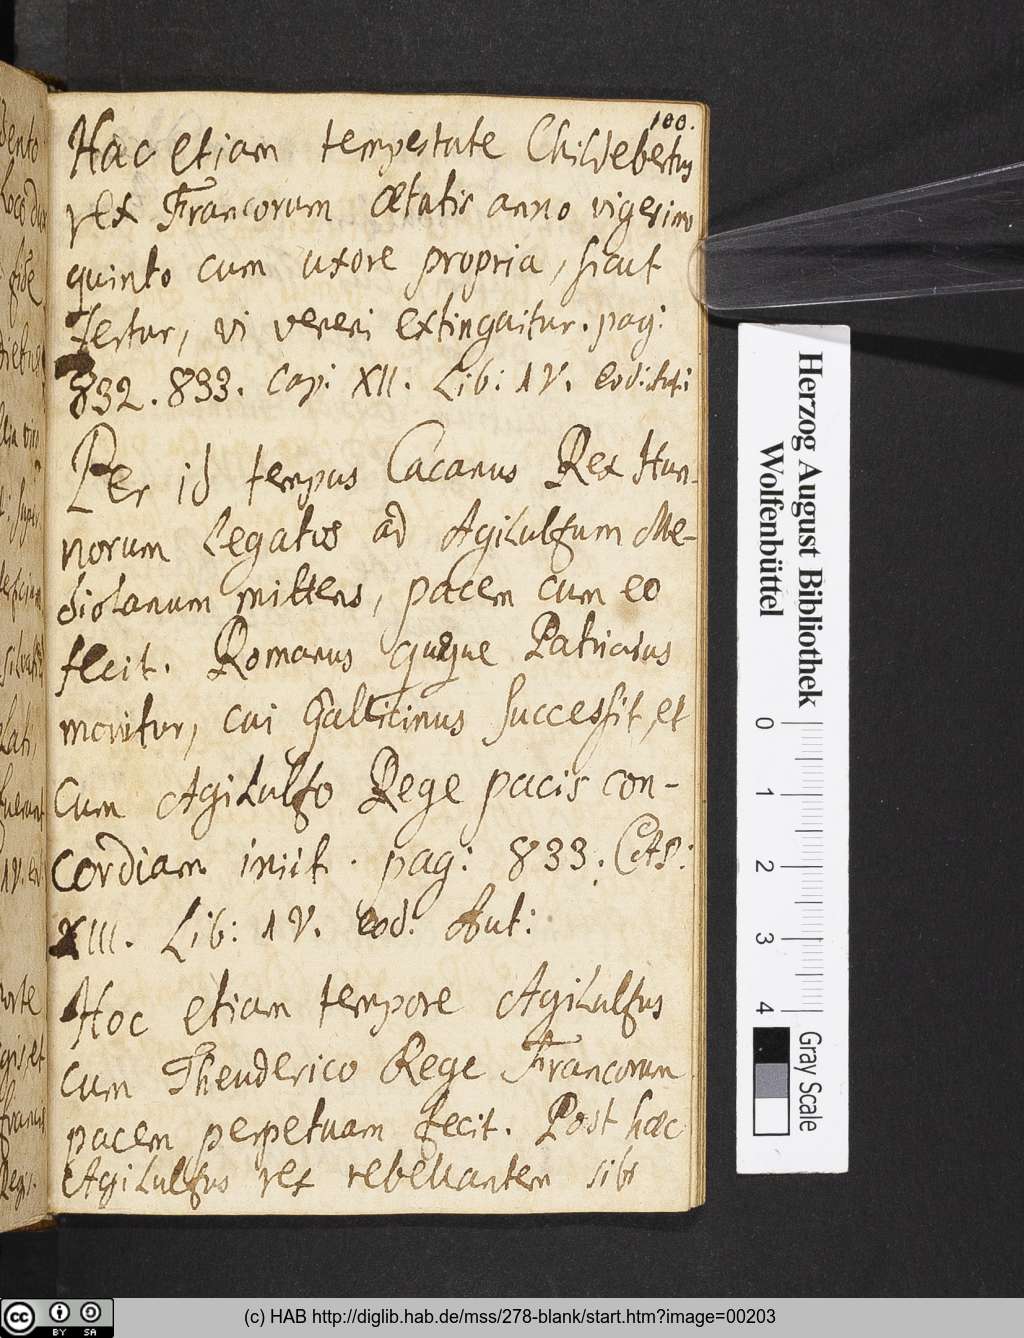 100.
Hac etiam tempestate Childebertus
rex Francorum ætatis anno vigesimo
quinto cum uxore propria, sicut
fertur, vi veneni extinguitur. pag:
832. 833. Cap: XII. Lib: IV. eod: Aut:
Per id tempus Cacanus Rex Hun-
norum legatos ad Agilulfum Me-
diolanum mittens, pacem cum eo
fecit. Romanus quoque Patricius
moritur, cui Gallicinus successit, et
cum Agilulfo Rege pacis con-
cordiam iniit. pag: 833. CAP:
XIII. Lib: IV. eod. Aut:
Hoc etiam tempore Agilulfus
cum Theuderico Rege Francorum
pacem perpetuam fecit. Post hæc
Agilulfus rex rebellantem sibi
Herzog August Bibliothek
Wolfenbüttel
0 1 2 3 4
Gray Scale
cc BY SA
(c) HAB http://diglib.hab.de/mss/278-blank/start.htm?image=00203